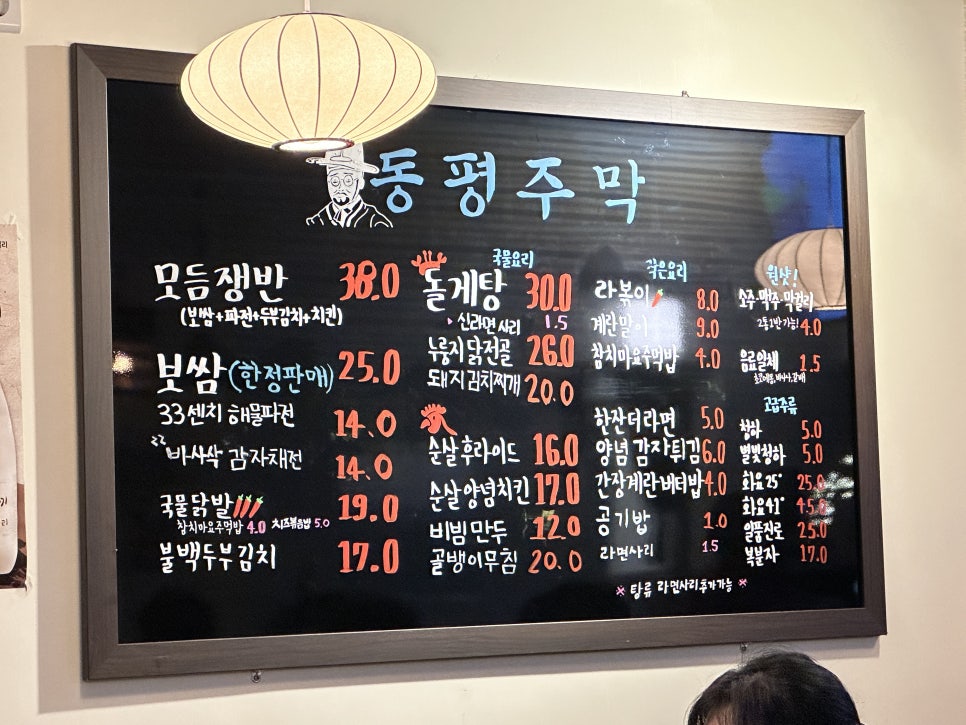 동평주막
모듬쟁반 38.0
(보쌈+파전+두부김치+치킨)
보쌈 (한정판매) 25.0
33센치 해물파전 14.0
바사삭 감자채전 14.0
국물닭발 19.0
참치마요주먹밥 4.0 치즈볶음밥 5.0
불백두부김치 17.0
국물요리
돌게탕 30.0
신라면 사리 1.5
누룽지 닭전골 26.0
돼지김치찌개 20.0
순살후라이드 16.0
순살양념치킨 17.0
비빔만두 12.0
골뱅이무침 20.0
작은요리
라볶이 8.0
계란말이 9.0
참치마요주먹밥 4.0
한잔더라면 5.0
양념감자튀김 6.0
간장계란버터밥 4.0
공기밥 1.0
라면사리 1.5
원샷!
소주·맥주·막걸리
4.0
음료일체 1.5
고급주류
청하 5.0
별빛청하 5.0
화요25° 25.0
화요41° 45.0
일품진로 25.0
복분자 17.0
※ 탕류 라면사리추가가능 ※